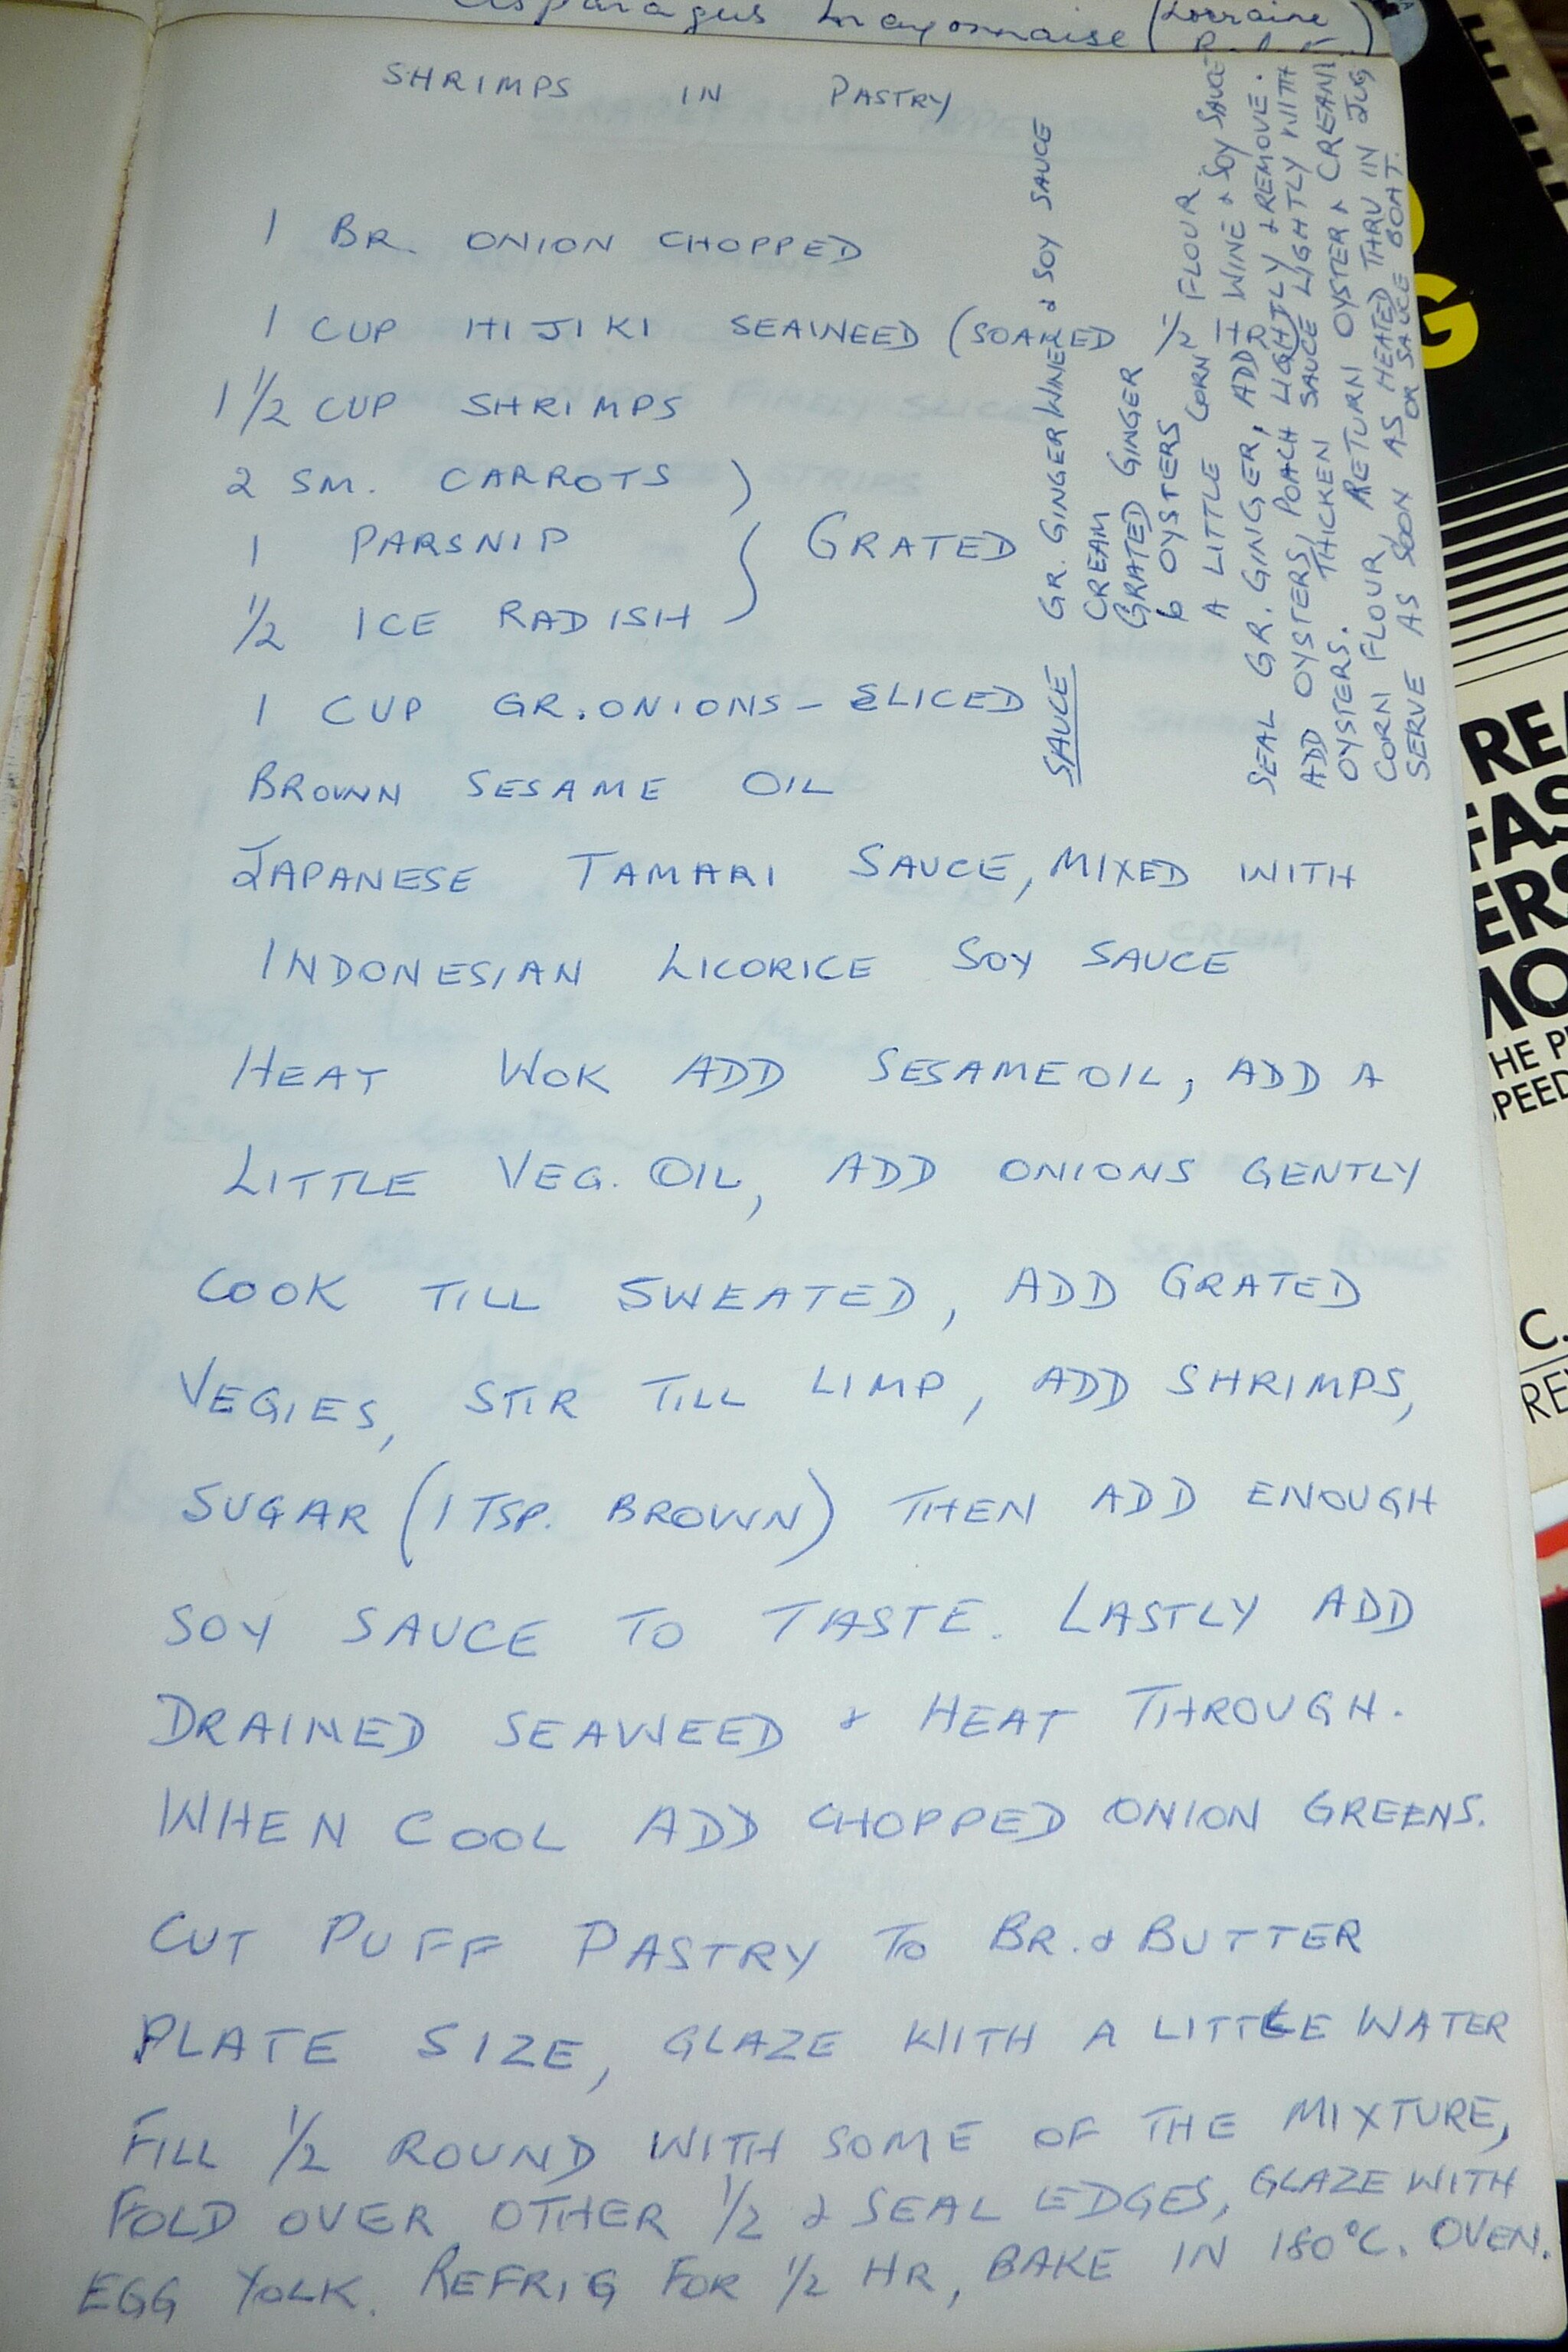 Asparagus Mayonnaise (Lorraine
SHRIMPS IN PASTRY
1 BR. ONION CHOPPED
1 CUP HIJIKI SEAWEED (SOAKED
1 1/2 CUP SHRIMPS
2 SM. CARROTS
1 PARSNIP
GRATED
1/2 ICE RADISH
1 CUP GR. ONIONS - SLICED
BROWN SESAME OIL
JAPANESE TAMARI SAUCE, MIXED WITH
INDONESIAN LICORICE SOY SAUCE
HEAT WOK ADD SESAME OIL, ADD A
LITTLE VEG. OIL, ADD ONIONS GENTLY
COOK TILL SWEATED, ADD GRATED
VEGIES, STIR TILL LIMP, ADD SHRIMPS,
SUGAR (1 TSP. BROWN) THEN ADD ENOUGH
SOY SAUCE TO TASTE. LASTLY ADD
DRAINED SEAWEED & HEAT THROUGH.
WHEN COOL ADD CHOPPED ONION GREENS.
CUT PUFF PASTRY TO BR. & BUTTER
PLATE SIZE, GLAZE WITH A LITTLE WATER
FILL 1/2 ROUND WITH SOME OF THE MIXTURE,
FOLD OVER OTHER 1/2 & SEAL EDGES, GLAZE WITH
EGG YOLK. REFRIG FOR 1/2 HR, BAKE IN 180°C. OVEN.
SAUCE GR. GINGER WINE & SOY SAUCE
CREAM
GRATED GINGER
6 OYSTERS
A LITTLE CORN FLOUR
SEAL GR. GINGER, ADD WINE & SOY SAUCE
ADD OYSTERS, POACH LIGHTLY & REMOVE.
THICKEN SAUCE LIGHTLY WITH
CORN FLOUR, RETURN OYSTER & CREAM.
SERVE AS SOON AS HEATED THRU IN JUG
OR SAUCE BOAT.
G
REA
FAS
ERS
MO
HE P
PEED
C.
RE